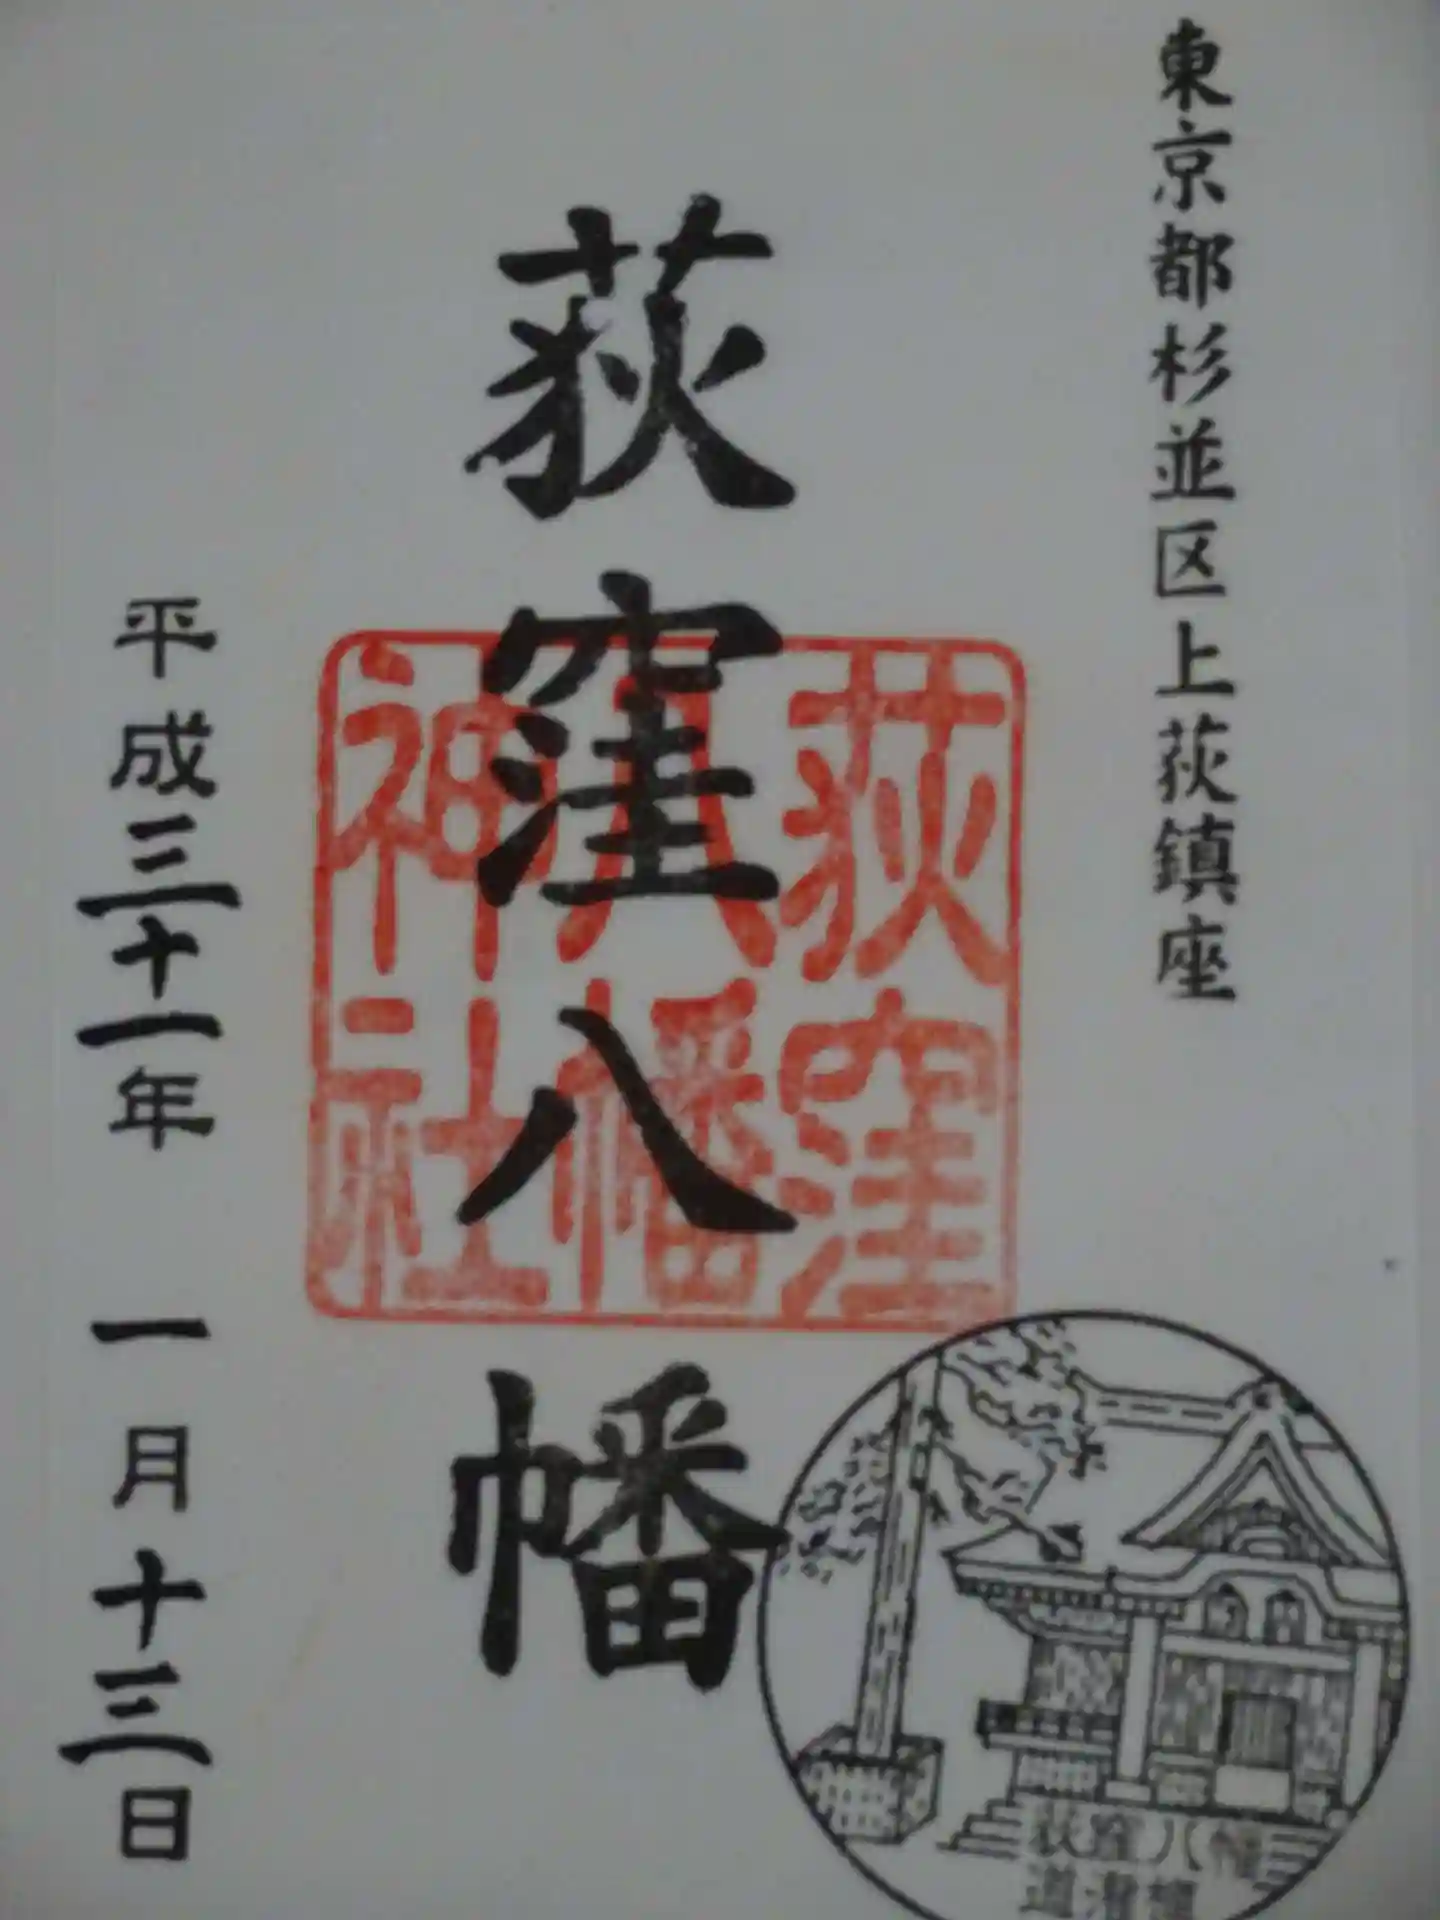 東京都杉並区上荻鎮座
荻窪八幡
荻窪
八幡
神社
平成三十一年 一月十三日
荻窪八幡